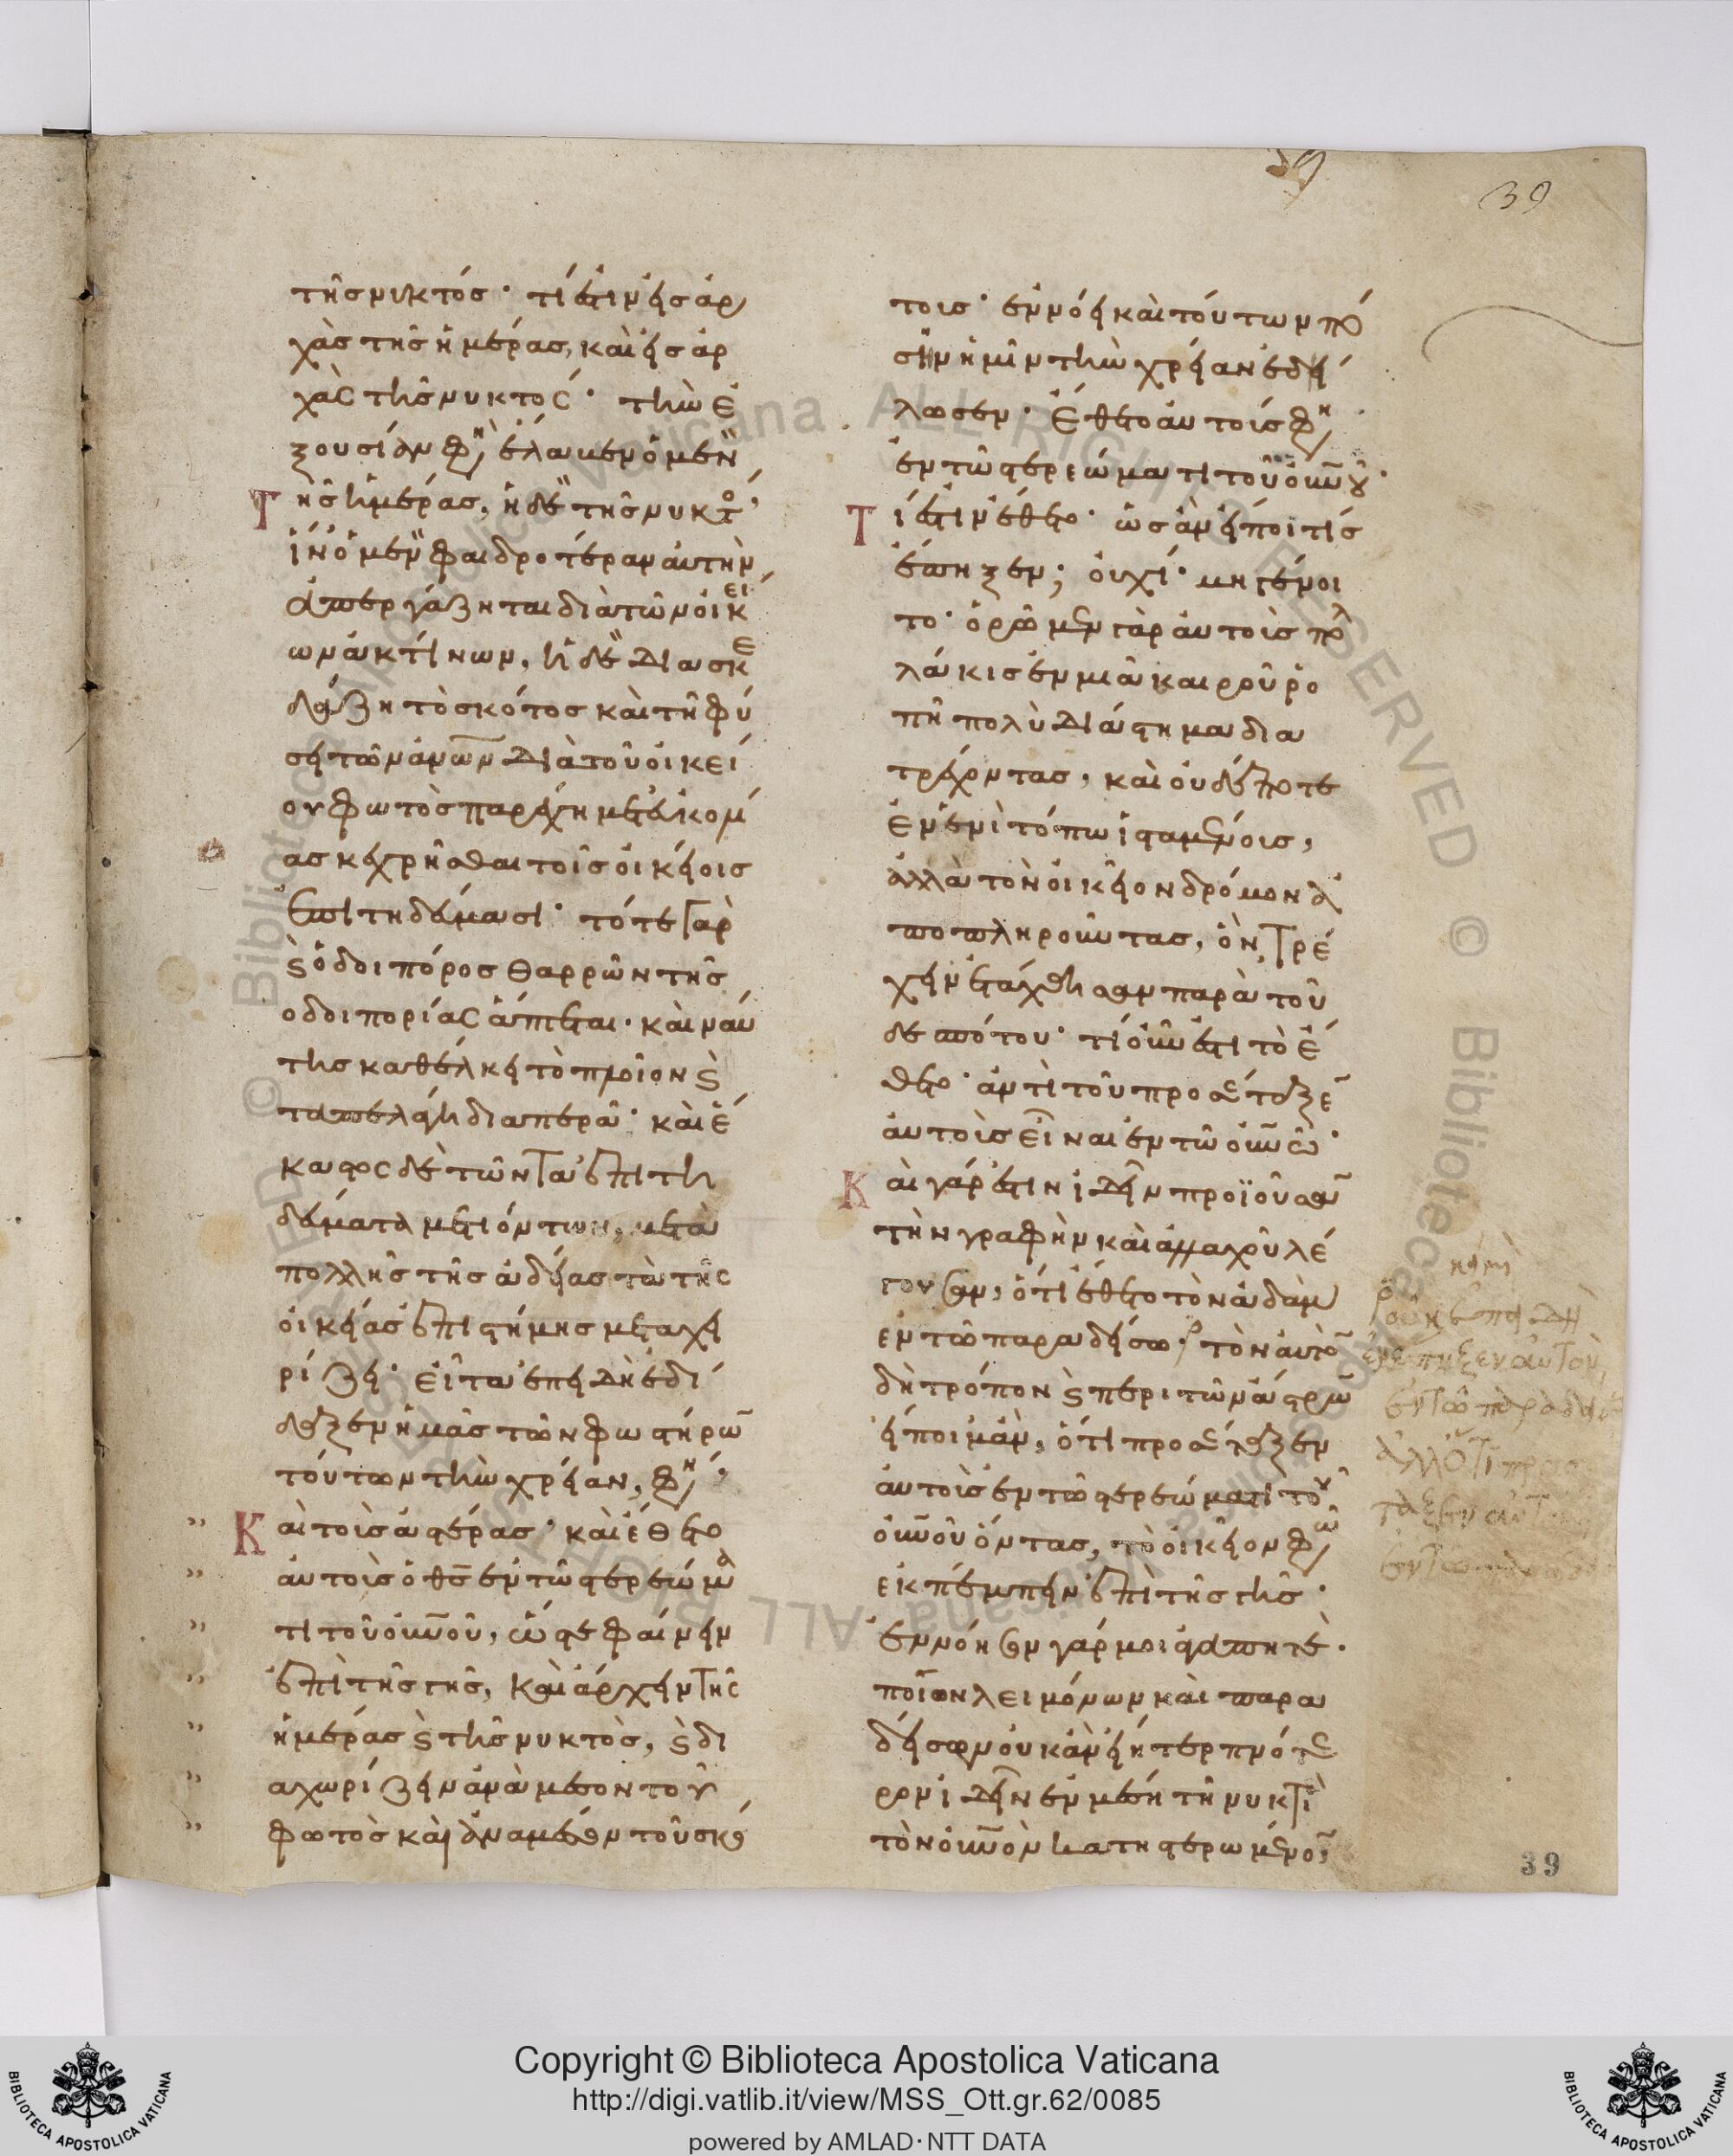 39
τῆς νυκτός· τί ἐστιν εἰς ἀρ
χὰς τῆς ἡμέρας, καὶ εἰς ἀρ
χὰς τῆς νυκτός· τὴν ἐ
ξουσίαν φη ἔλαχεν ὁ μὲν
τῆς ἡμέρας, ἡ δὲ τῆς νυκτ
ἵν ὁ μὲν φαιδροτέραν αὐτὴν
ἀπεργάζηται διὰ τῶν οἰκεί
ων ἀκτίνων, ἡ δὲ διασκε
δάζη τὸ σκότος καὶ τῆ φύ
σει τῶν ἀνων διὰ τοῦ οἰκεί
ου φωτὸς παρέχη μετὰ κομ
ας κεχρῆσθαι τοῖς οἰκείοις
ἐπιτηδεύμασι· τότε γὰρ
καὶ ὁδοιπόρος θαρρῶν τῆς
οδοιπορίας ἅπτεται· καὶ ναύ
της καθέλκει τὸ πλοῖον καὶ
τὰ πελάγη διαπερᾶ· καὶ ἕ
καστος δὲ τῶν τὰ ἐπιτη
δεύματα μετιόντων, μετὰ
πολλῆς τῆς ἀδείας τὰ τῆς
οἰκείας ἐπιστήμης μεταχει
ρίζει· εἶτα ἐπειδὴ ἐδί
δαξεν ἡμᾶς τῶν φωστήρω
τούτων τὴν χρείαν, φη,
Καὶ τοὺς ἀστέρας· καὶ ἔθετο
αὐτοὺς ὁ θς ἐν τῶ στερεώμα
τι τοῦ οὐνοῦ, ὥστε φαίνειν
ἐπὶ τῆς γῆς, καὶ ἄρχειν τῆς
ἡμέρας καὶ τῆς νυκτὸς, καὶ δι
αχωρίζειν ἀνὰ μέσον τοῦ
φωτὸς καὶ ἀναμέσον τοῦ σκό
τους· ἐννόει καὶ τούτων πό
σην ἡμῖν τὴν χρείαν ἐδή
λωσεν· ἔθετο αὐτούς φη
ἐν τῶ στερεώματι τοῦ οὐνοῦ·
Τί ἐστιν ἔθετο· ὡς ἂν εἴποι τίς
ἔπηξεν; οὐχί· μὴ γένοι
το· ὁρῶμεν γὰρ αὐτοὺς πολ
λάκις ἐν μιᾶ καιροῦ ῥο
πῆ πολὺ διάστημα δια
τρέχοντας, καὶ οὐδέποτε
ἐν ἑνὶ τόπω ἱσταμένους,
ἀλλὰ τὸν οἰκεῖον δρόμον ἀ
ποπληροῦντας, ὃν τρέ
χειν ἐτάχθησαν παρὰ τοῦ
δεσπότου· τί οὖν ἐστι τὸ ἔ
θετο· ἀντὶ τοῦ προσέταξε
αὐτοὺς εἶναι ἐν τῶ οὐνῶ·
Καὶ γάρ ἐστιν ἰδεῖν προϊοῦσαν
τὴν γραφὴν καὶ ἀλλαχοῦ λέ
γουσαν, ὅτι ἔθετο τὸν ἀδὰμ
ἐν τῶ παραδείσω· τὸν αὐτὸ
δὴ τρόπον καὶ περὶ τῶν ἄστρω
εἴποιμ ἂν, ὅτι προσέταξεν
αὐτοὺς ἐν τῶ στερεώματι τοῦ
οὐνοῦ ὄντας, τὸ οἰκεῖον φω
ἐκπέμπειν ἐπὶ τῆς γῆς·
ἐννόησον γάρ μοι ἀγαπητέ·
ποίων λειμόνων καὶ παρα
δείσων οὐκ ἂν εἴη τερπνότε
ρον ἰδεῖν ἐν μέση τῆ νυκτὶ
τὸν οὐνὸν κατηστερωμένον,
οὐκ ἐπειδὴ
ἐνέπηξεν αὐτὸν
ἐν τῶ παραδεί
ἀλλ ὅτι προσ
39
Copyright © Biblioteca Apostolica Vaticana
http://digi.vatlib.it/view/MSS_Ott.gr.62/0085
powered by AMLAD·NTT DATA